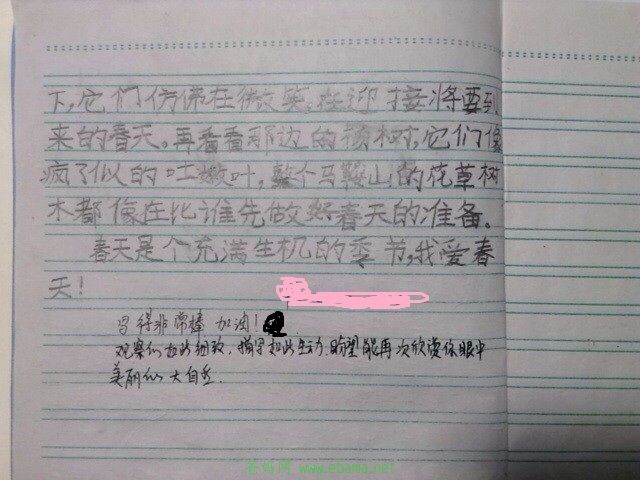 下,它们仿佛在微笑,在迎接将要到
来的春天。再看看那边的桃树,它们像
疯了似的吐嫩叶,整个马鞍山的花草树
木都像在比谁先做好春天的准备。
春天是个充满生机的季节,我爱春
天!
写得非常棒 加油!
观察们如此细致,描写如此生动.盼望能再次欣赏你眼中
美丽的大自然.
在妈网 www.ebama.net